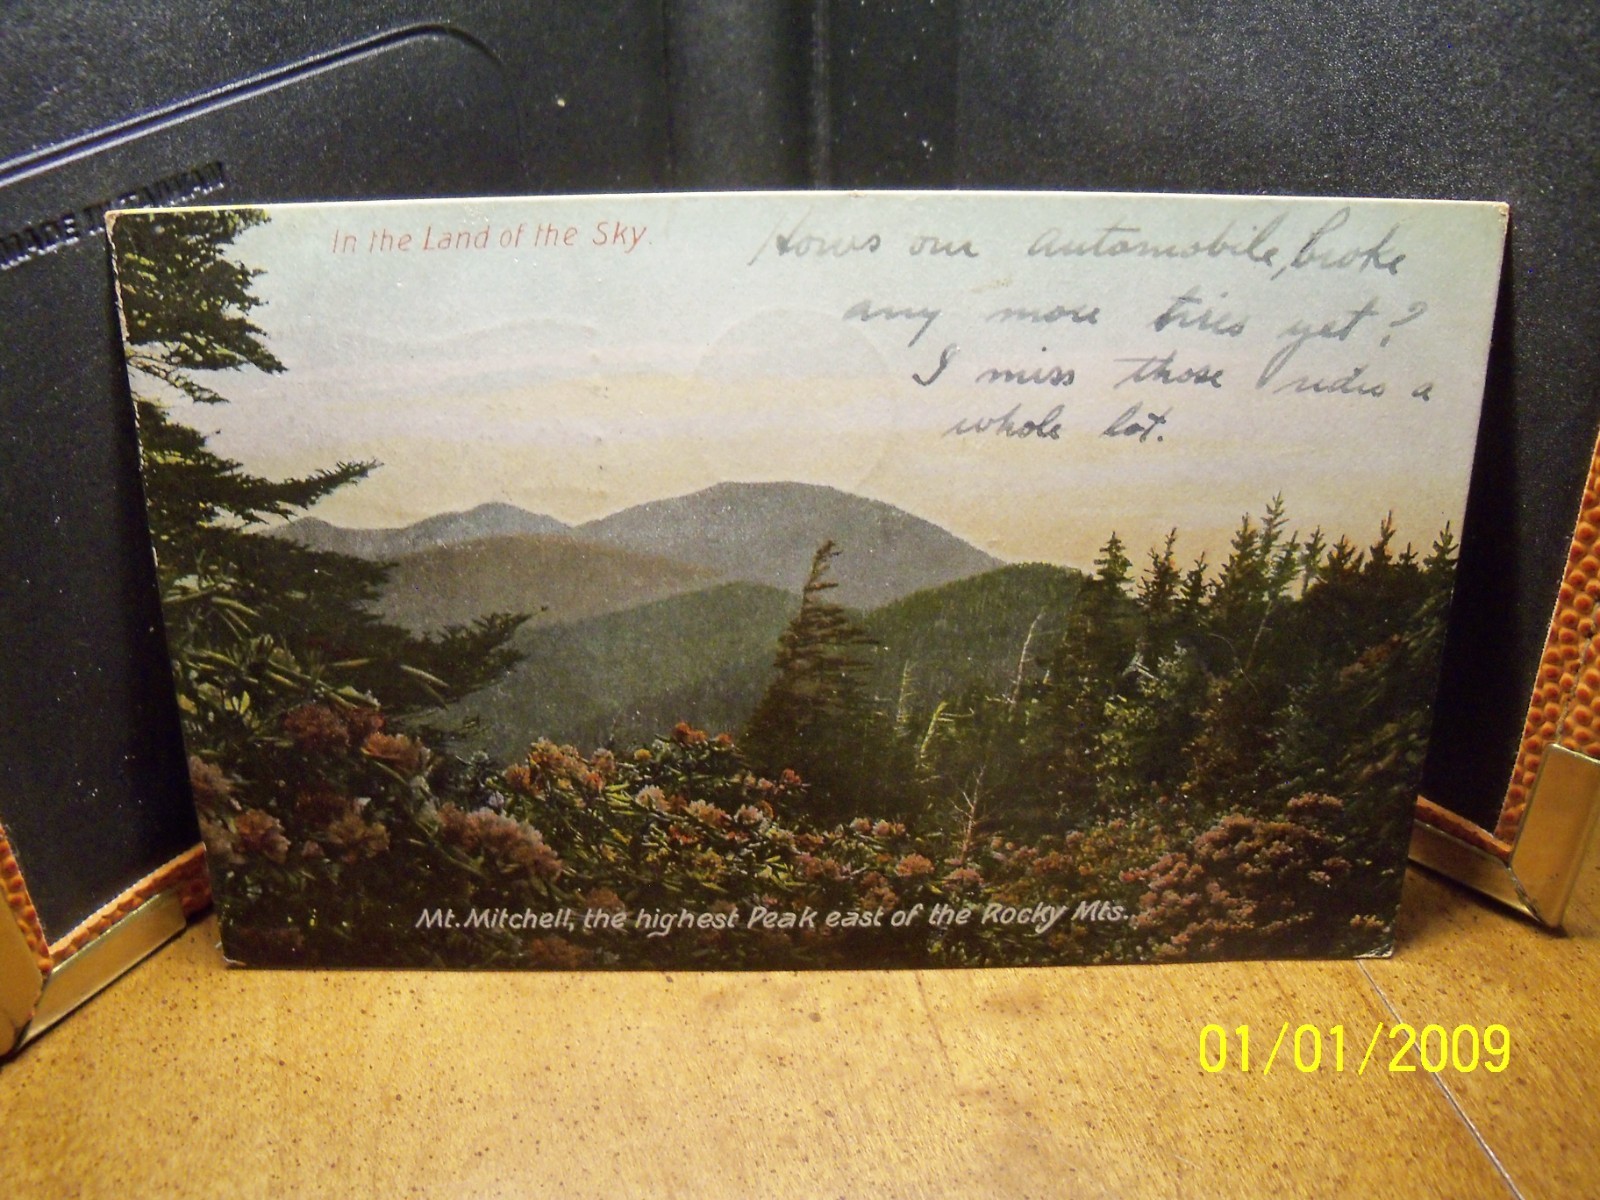 MADE IN TAIWAN
In the Land of the Sky.
Hows our automobile, broke
any more tires yet?
I miss those rides a
whole lot.
Mt. Mitchell, the highest Peak east of the Rocky Mts.
01/01/2009